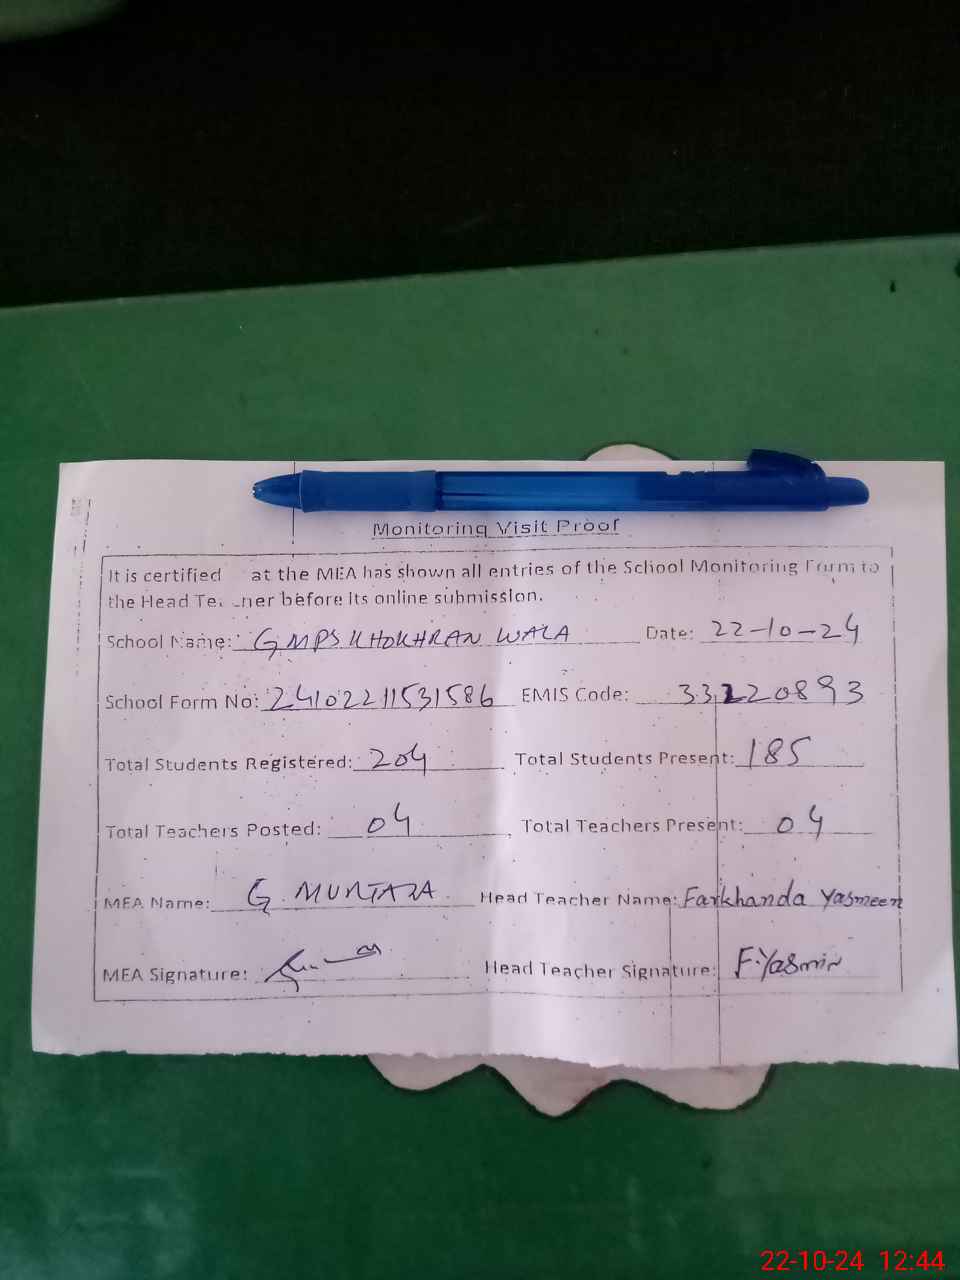 Monitoring Visit Proof
It is certified at the MEA has shown all entries of the School Monitoring Form to
the Head Te ner before its online submission.
School Name: GMPS KHOKHRAN WALA Date: 22-10-24
School Form No: 24102211531586 EMIS Code: 33220893
Total Students Registered: 204 Total Students Present: 185
Total Teachers Posted: 04 Total Teachers Present: 04
MEA Name: G. MURTAZA Head Teacher Name: Farkhanda Yasmeen
MEA Signature: Head Teacher Signature: F.Yasmin
22-10-24 12:44